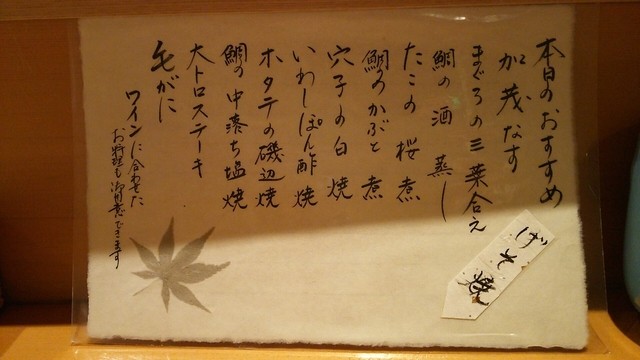 本日のおすすめ
加茂なす
まぐろの三葉合え
鯛の酒蒸し
たこの桜煮
鯛のかぶと煮
穴子の白焼
いわしぽん酢焼
ホタテの磯辺焼
鯛の中落ち塩焼
大トロステーキ
毛がに
ワインに合わせた
お料理も御用意できます
げそ焼